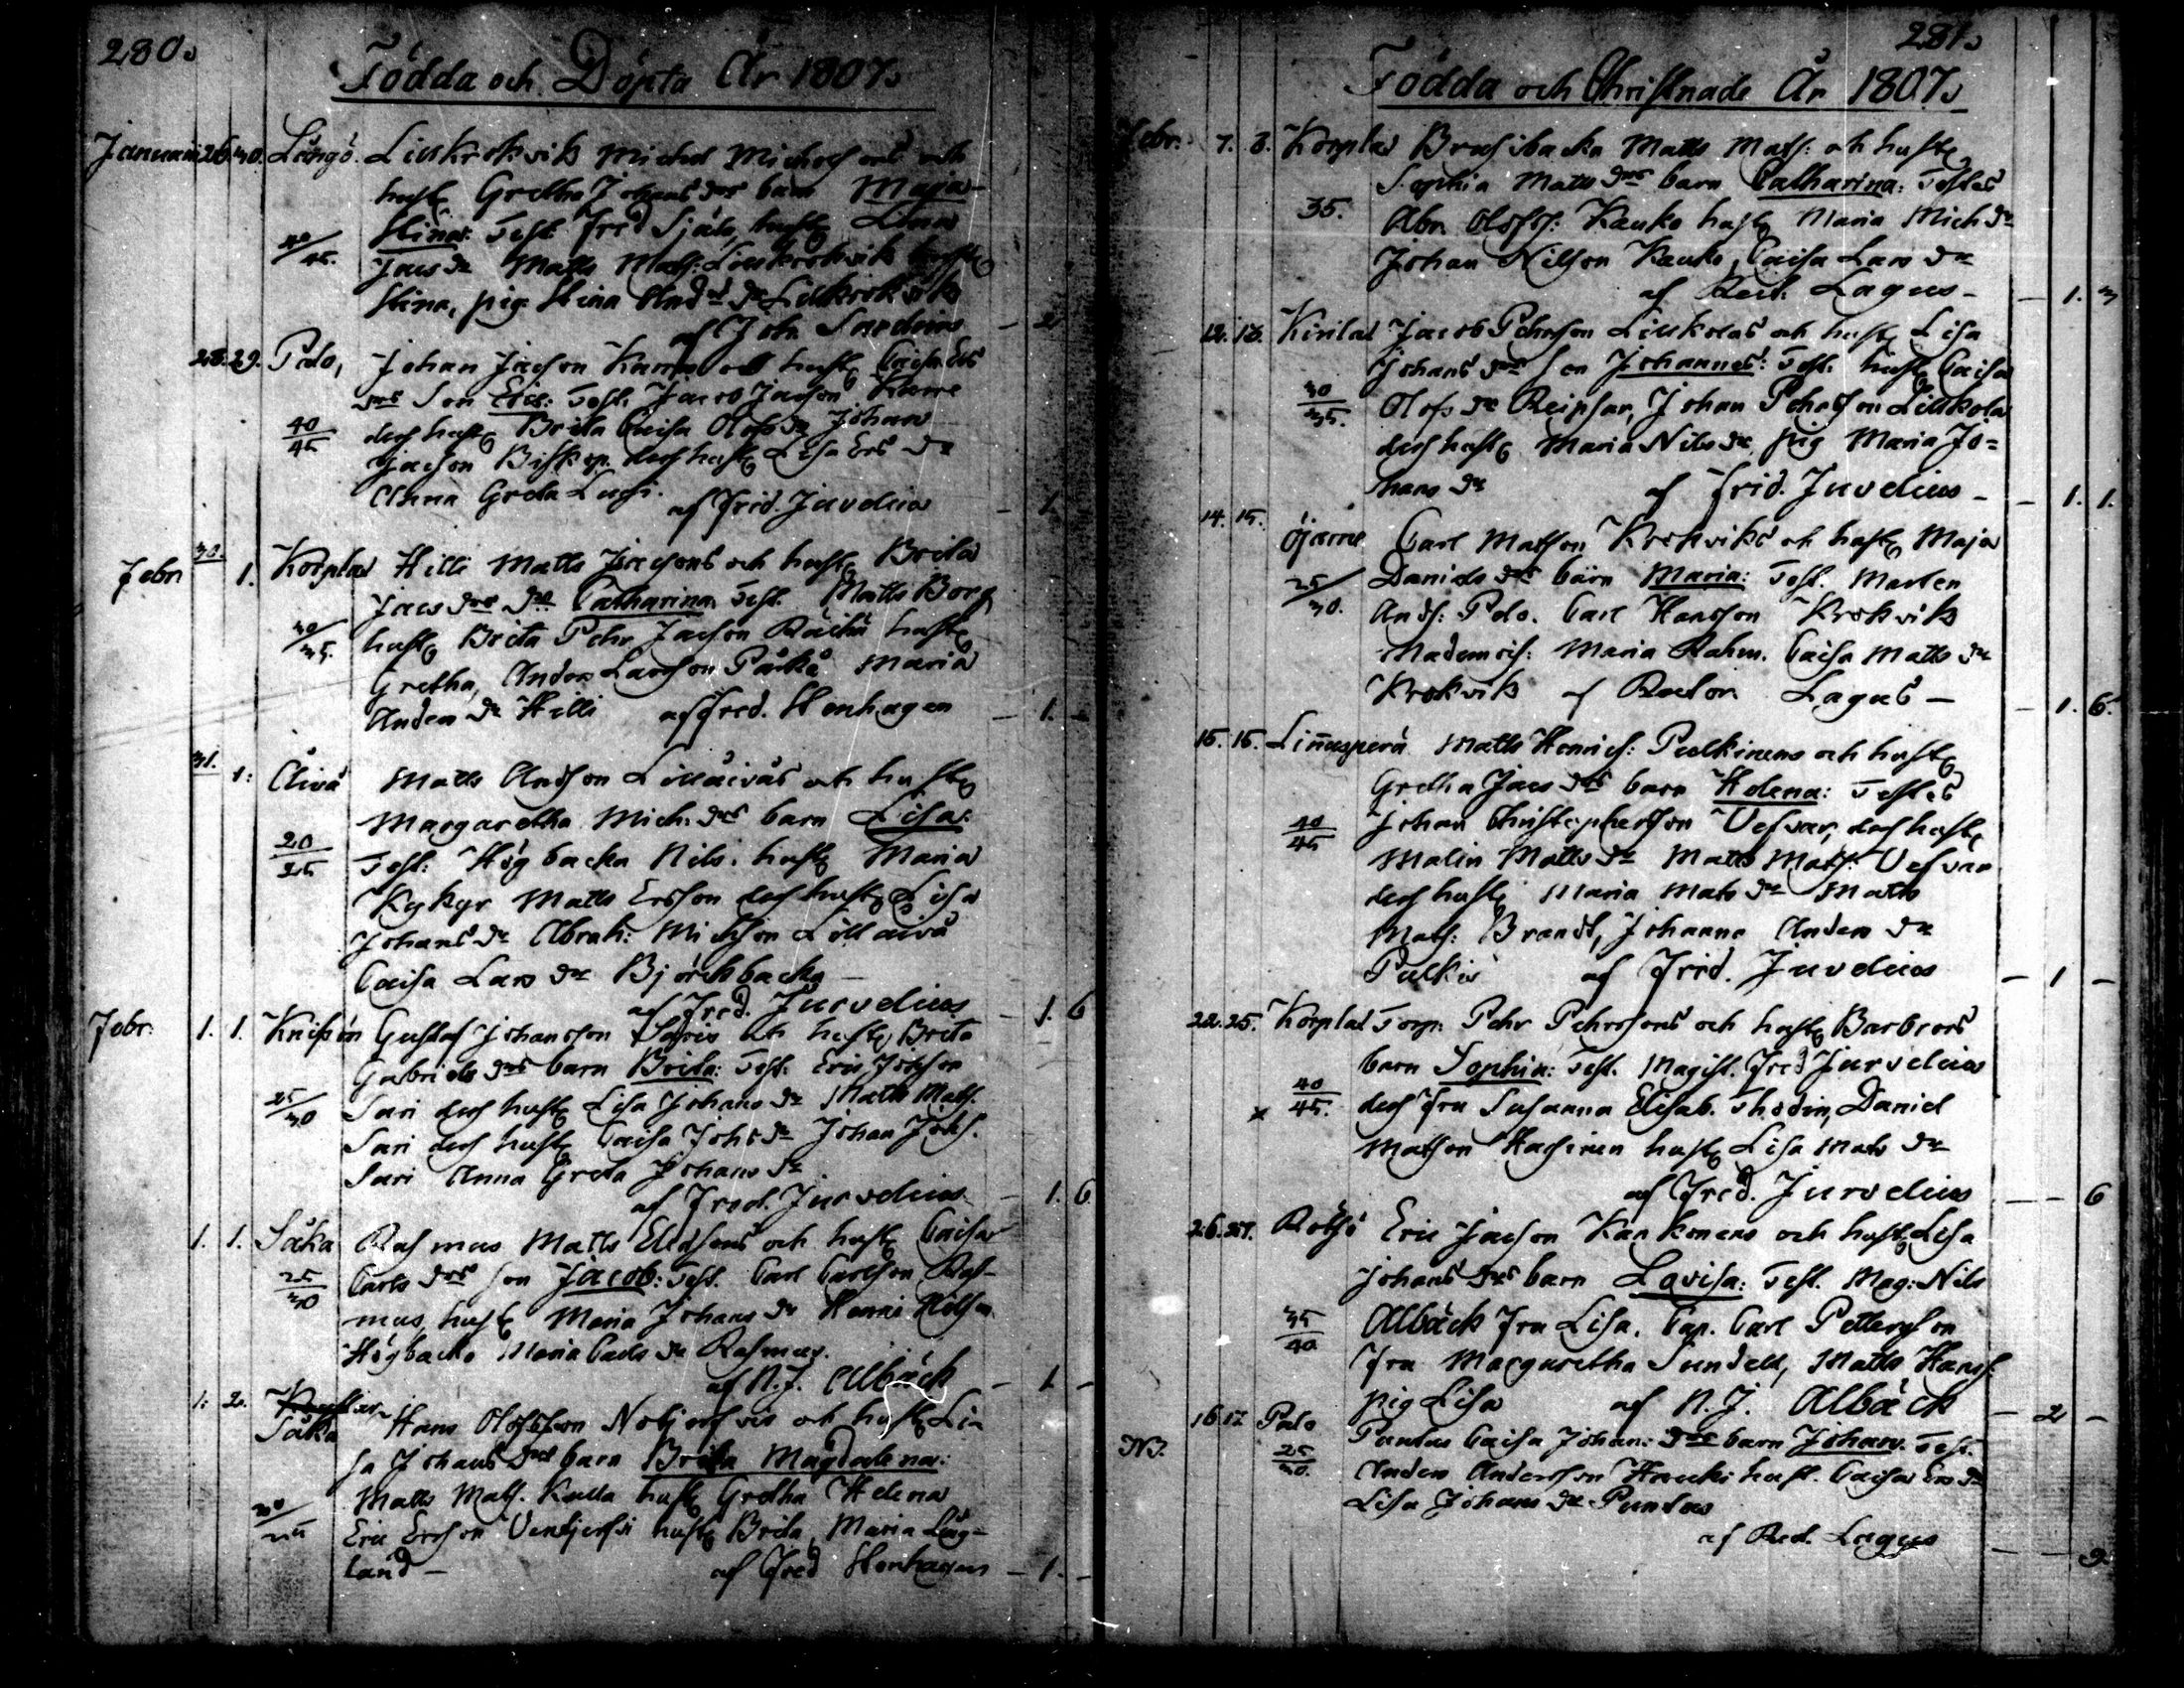 280.
Födda och Döpta År 1807.
Januari 26. 30. Långö. Lillkrokvik Michel Michelsons och
hust. Gretha Johans drs barn Maja
Stina: Test. Fred Själ, hust. Lena
40/45. Jacs dr Matts Mats: Lillkrokvik hust.
Stina, pig. Stina And. dr Lillkrokvik
af Joh. Sundvius — 2
28. 29. Palo, Johan Jacson Karre och hust. Caisa Ers
drs Son Eric: Test. Jacob Jacson Karre
40/45 dess hust. Brita Caisa Olofs dr Johan
Jacson Biskop. dess hust. Lisa Ers dr
Anna Greta
af Frid. Juvelius — 1.
30.
Febr 1. Korplax Hilli Matts Jacsons och hust. Brita
Jacs drs dr Catharina Test. Matts Borg
30/35. hust. Brita Pehr Jacson hust.
Gretha, Anders Larsson Maria
Anders dr Hilli af Fred. Stenhagen — 1. —
31. 1: Åivå Matts Andson Lilläiväs och hust.
Margaretha Mich. drs barn Lisa:
20/25 Test: Högbacka Nils. hust. Maria
Kykyr Matts Ersson dess hust. Lisa
Johans dr Abrah: Michson Lilläivä
Caisa Lars dr Björckbacka —
af Fred. Juvelius — 1. 6
Febr: 1. 1. Gustaf Johansson och hust. Brita
Gabriels drs barn Brita: Test. Eric
25/30 Sari dess hust. Lisa Johans dr Matts Mats.
Sari dess hust. Caisa Johs dr Johan Johs.
Sari Anna Greta Johans dr
af Fred. Juvelius — 1. 6
1. 1. Säkä Rasmus Matts och hust. Caisa
25/30 Carls drs son Jacob: Test. Carl Carlson Ras-
mus, hust. Maria Johans dr
Högbacka Maria Carls dr Rasmus.
af N. J. Albäck — 1 —
1: 2. Säkä Hans Olofsson och hust. Li
sa Johans drs barn Brita Magdalena:
Matts Mats. Kulla hust. Gretha Helena
Eric Ersson hust. Brita, Maria Läg-
land — af Fred Stenhagen — 1. —
281.
Födda och Christnade År 1807.
Febr: 7. 8. Korplax Matts Mats: och hust.
Sophia Matts drs barn Catharina: Testes
35. Abr. Olofss: Kauko hust. Maria Mich dr
Johan Nilson Kauko, Caisa Lars dr
af Rect. Lagus — — 1. 3
12. 13. Kirilax Jacob Pehrson Lillkolas och hust. Lisa
Johans drs son Johannes: Test. hust. Caisa
30/35. Olofs dr Reipsar, Johan Pehrson Lillkola
dess hust. Maria Nils dr, pig Maria Jo=
hans dr af Frid. Juvelius — — 1. 1.
14. 15. Öjarne Carl Matson Krokviks och hust. Maja
25/30. Daniels drs barn Maria: Test. Marten
Ands: Palo. Carl Hansson Krokvik
Mademois: Maria Rahm. Caisa Matts dr
Krokvik af Rector Lagus — — 1. 6.
15. 16. Linnasperä Matts Henrics: Pulkinens och hust.
Gretha Jacs drs barn Helena: Testes
40/45 Johan Christophersson Vesvar, dess hust.
Malin Matts dr Matts Mats: Vesvar
dess hust. Maria Mats dr Matts
Mats: Brandt, Johanna Anders dr
Pulkis af Frid. Juvelius — 1 —
22. 25. Korplax Torp: Pehr Pehrssons och hust. Barbros
barn Sophia: Test. Magist. Fred Jurvelius
x 40/45. dess Fru Susanna Elisab. Thodin, Daniel
Matson hust. Lisa Mats dr
af Fred. Jurvelius — — 6
26. 27. Rötsö Eric Jacson Kankonens och hust. Lisa
Johans drs barn Lovisa: Test. Mag: Nils
35/40 Albäck Fru Lisa. Cap. Carl Petterson
Fru Margaretha Sundell, Matts Hanss:
pig Lisa af N. J. Albäck — 2 —
16. 17 Palo Puntas Caisa Johan: drs barn Johan. Test.
NB. 25/30. Anders Andersson Hauki hust. Caisa Ers dr
Lisa Johans dr Puntas
af Rect. Lagus — — 9.